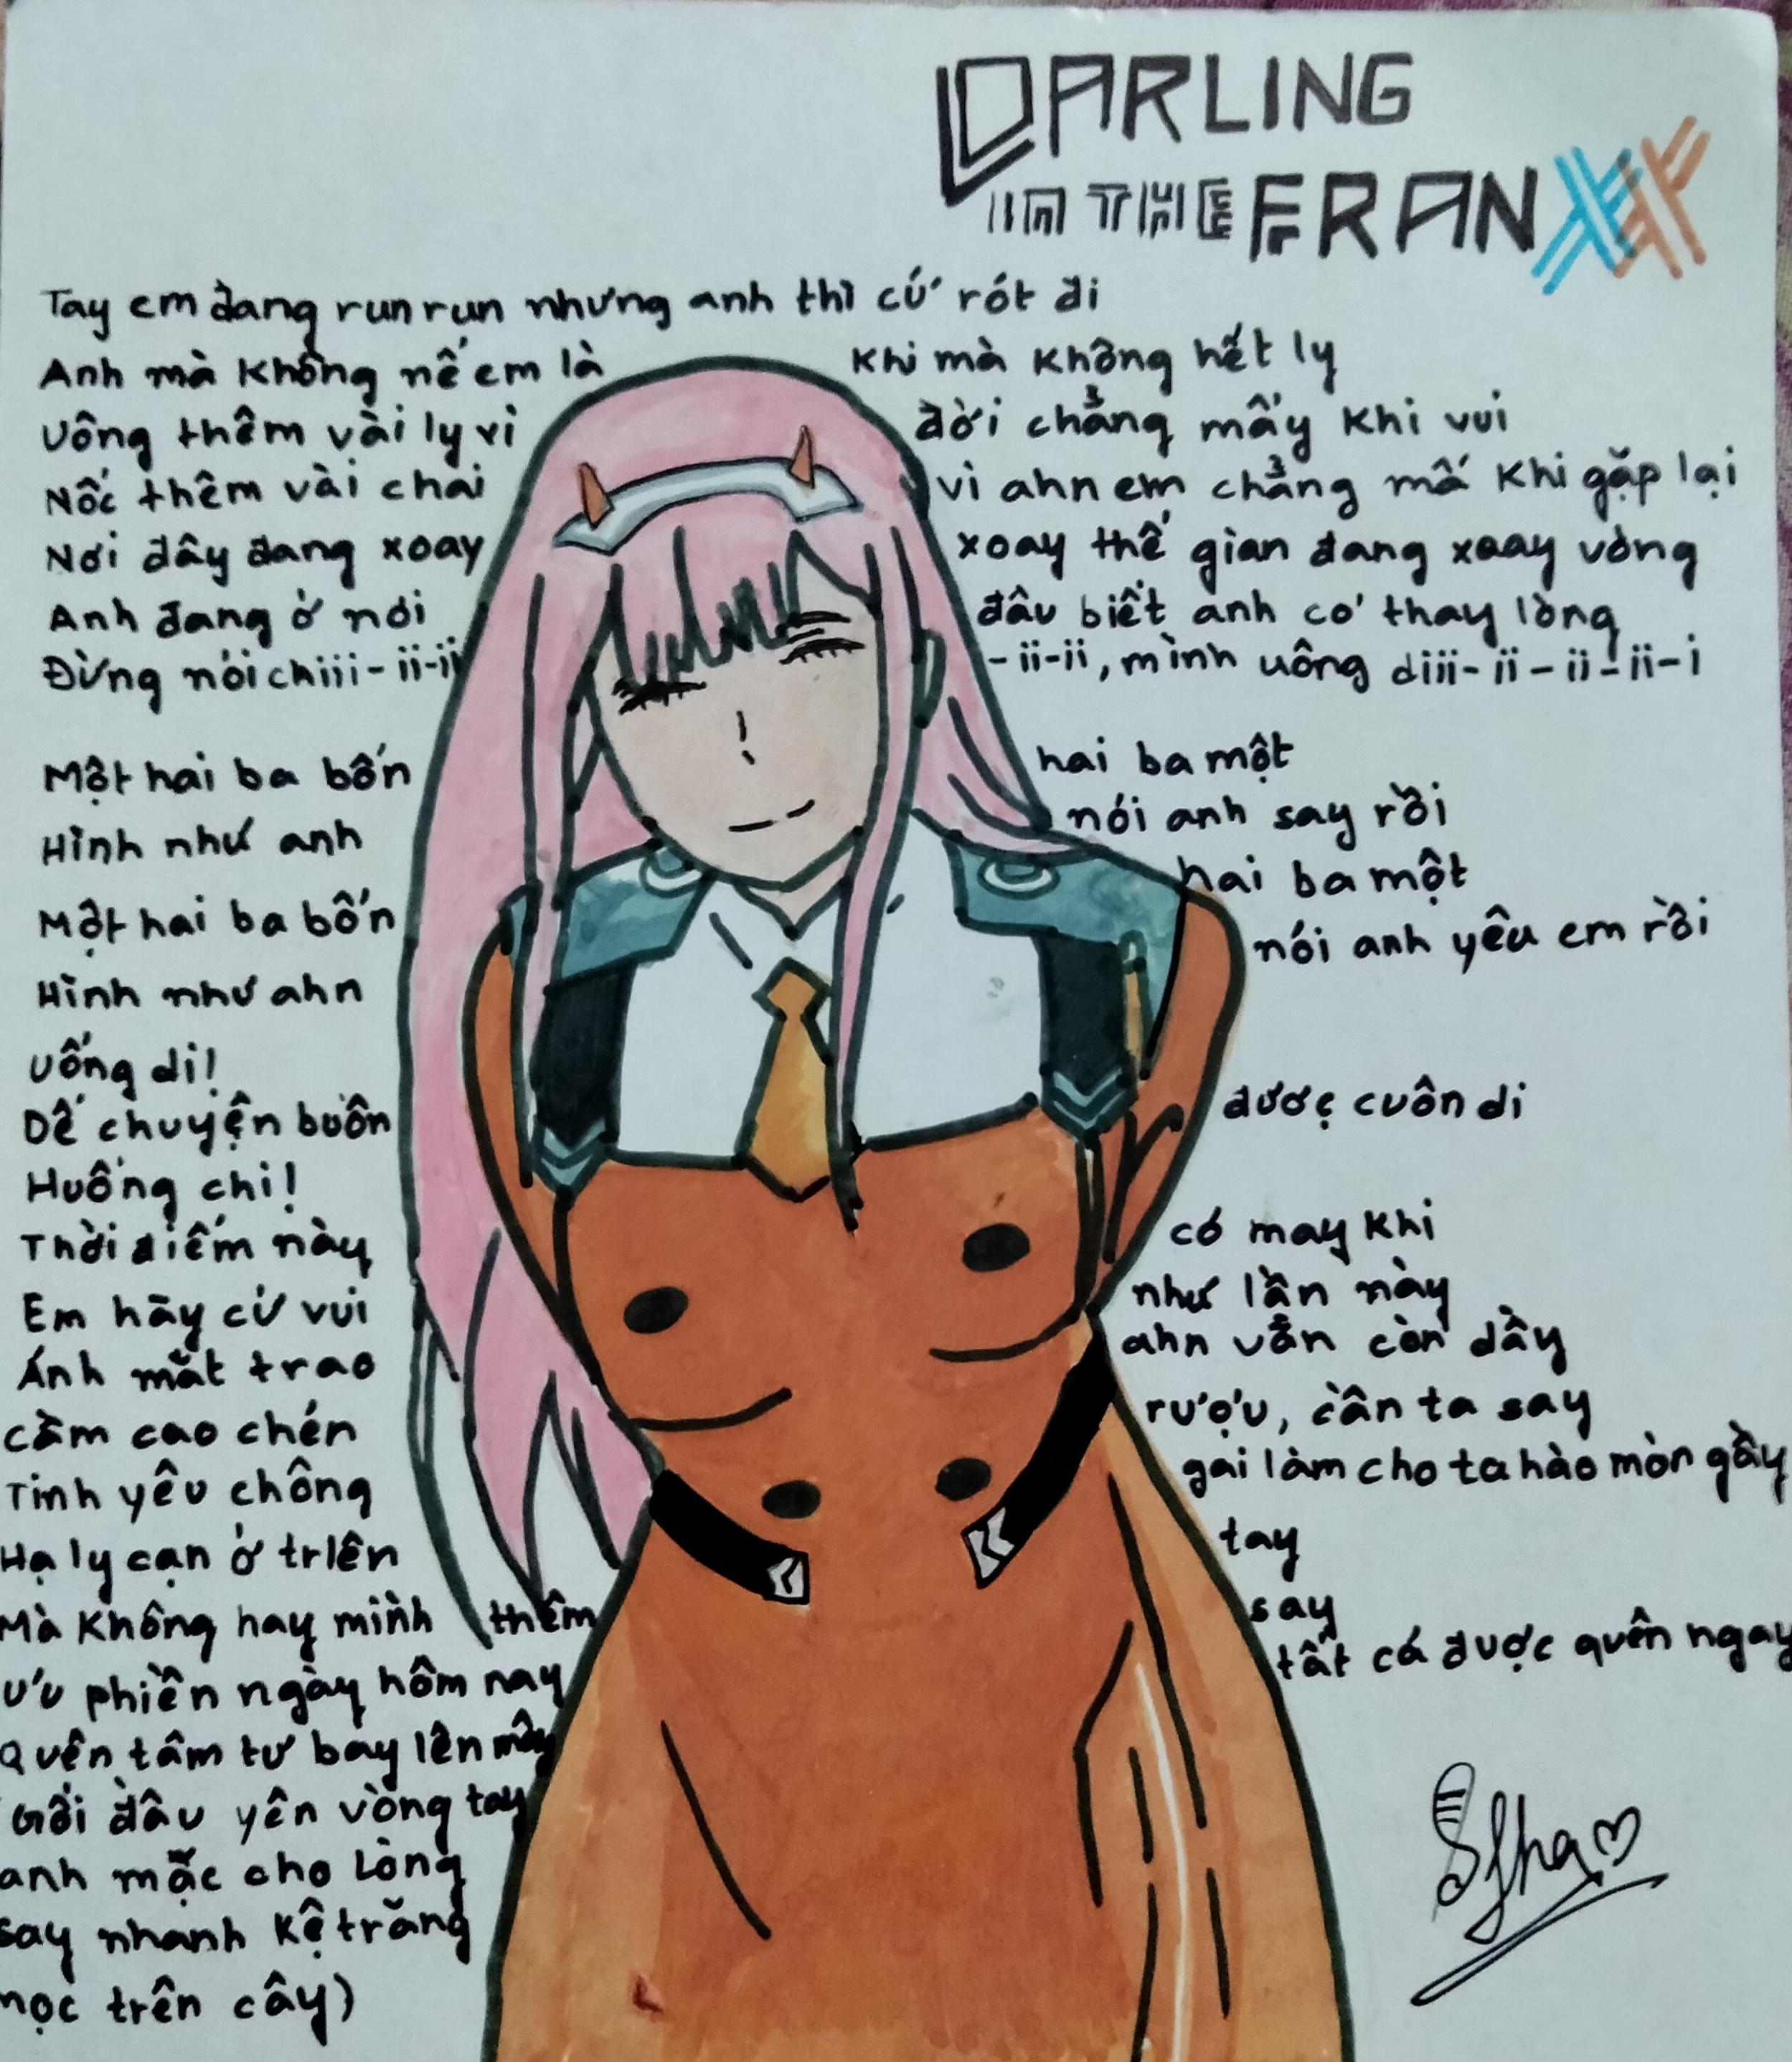 DARLING
IN THE FRANXX
Tay em đang run run nhưng anh thì cứ rót đi
Anh mà không nế em là khi mà không hết ly
Uông thêm vài ly vì đời chẳng mấy khi vui
Nốc thêm vài chai vì ahn em chẳng mấ khi gặp lại
Nơi đây đang xoay xoay thế gian đang xoay vòng
Anh đang ở nơi đâu biết anh có thay lòng
Đừng nói chiii-ii-ii -ii-ii, mình uông diii-ii-ii-ii-i
Một hai ba bốn hai ba một
Hình như anh nói anh say rồi
Một hai ba bốn hai ba một
Hình như ahn nói anh yêu em rồi
Uống di!
Dế chuyện buồn được cuôn di
Huống chi! có may khi
Thời điếm này như lần này
Em hãy cứ vui ahn vẫn còn dầy
Ánh mắt trao rượu, cần ta say
cầm cao chén gai làm cho ta hào mòn gầy
Tinh yêu chông tay
Hạ ly cạn ở trlên say
Mà không hay mình thêm tất cá được quên ngay
ưu phiền ngày hôm nay
Quên tâm tư bay lên mây
Gối đầu yên vòng tay
anh mặc cho lòng
say nhanh kệ trăng
mọc trên cây)